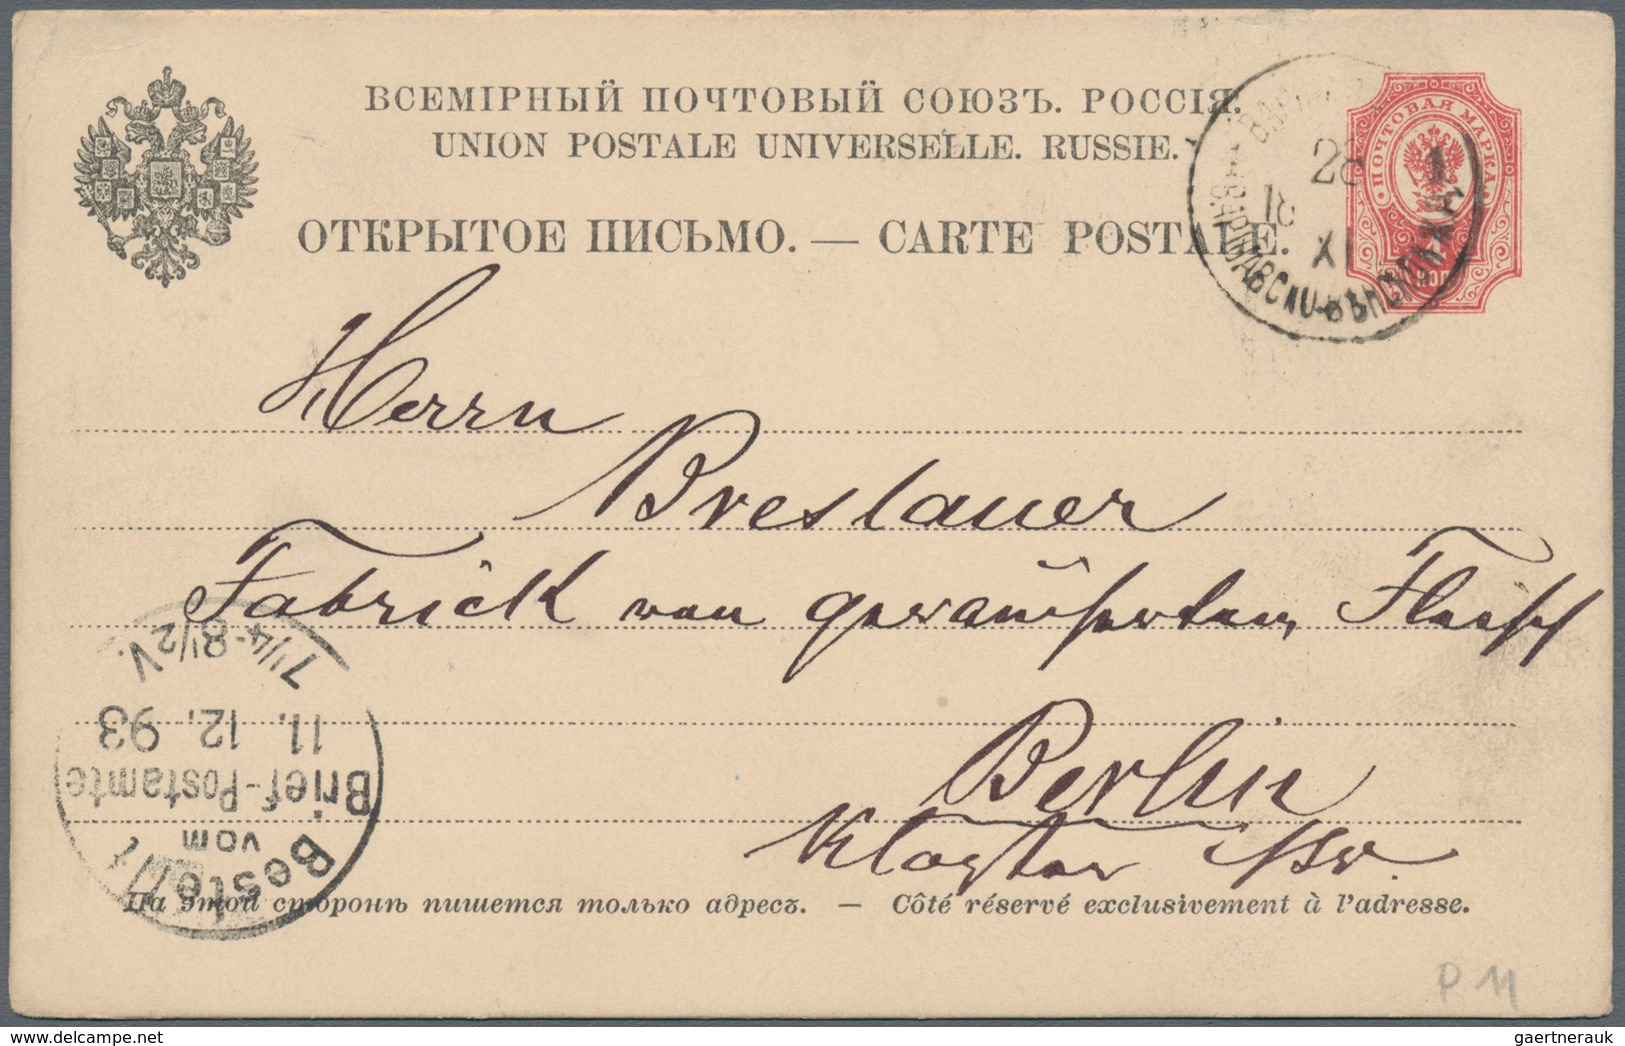 ВСЕМІРНЫЙ ПОЧТОВЫЙ СОЮЗЪ. РОССІЯ.
UNION POSTALE UNIVERSELLE. RUSSIE.
ОТКРЫТОЕ ПИСЬМО. — CARTE POSTALE.
ПОЧТОВАЯ МАРКА
28 1
18 XI
Herrn
Breslauer
Fabrick von
Berlin
Kloster Str.
7 1/4-8 1/2 V.
11. 12. 93
Brief-Postamte
vom
Bestellt
На этой сторонѣ пишется только адресъ. — Côté réservé exclusivement à l'adresse.
P 11
gaertnerauk